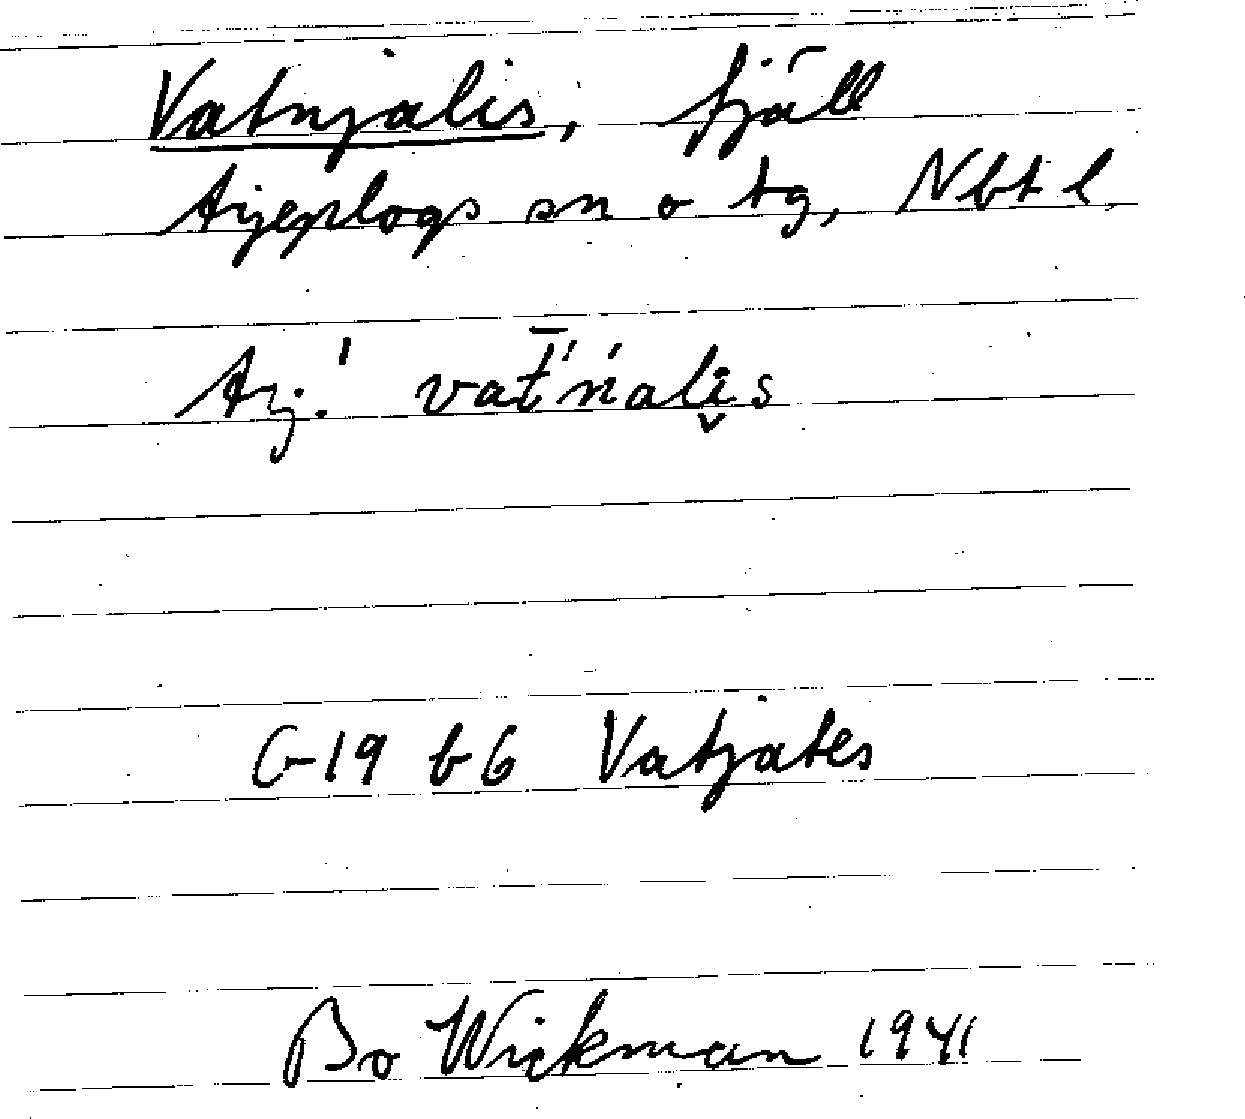 Vatnjalis, fjäll
Arjeplogs sn o tg, Nbt l
Arj.! vat̄'ńali̬s
G-19 b6 Vatjates
Bo Wickman 1941